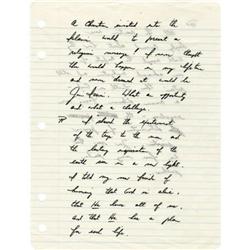 A Christian invited into the
Islamic world to present a
religious message! I never thought
this would happen in my lifetime
and never dreamed it would be
Jim Irwin. What a opportunity
and what a challenge.
I shared the excitement
of the trip to the moon and
the lasting impression of the
earth seen in a new light.
I told my new friends
knowing that God is alive,
that He loves all of us,
and that He has a plan
for each life.